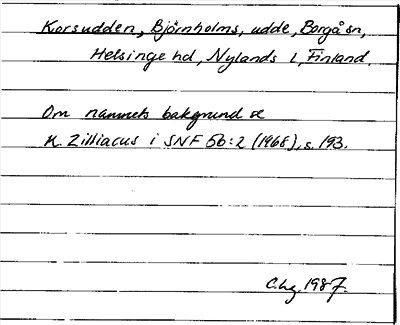 Korsudden, Björnholms, udde, Borgå sn,
Helsinge hd, Nylands l, Finland.
Om namnets bakgrund se
K. Zilliacus i SNF 56:2 (1968), s. 193.
C.hg. 1987.